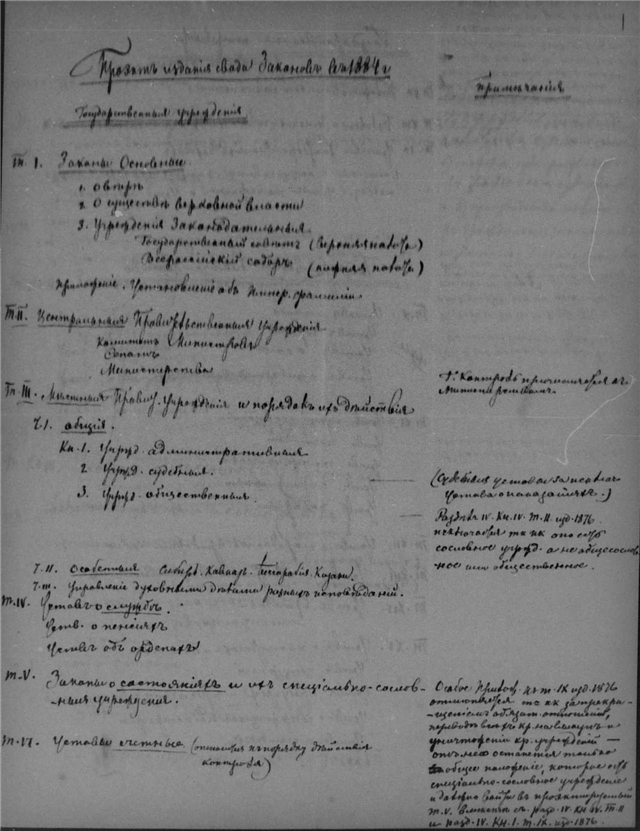 Проэктъ изданія свода Законовъ 1884 г
Примѣчанія
Государственныя учрежденія
Т. I. Законы Основные
1.
2. О существѣ верховной власти
3. Учрежденія Законодательныя
Государственный совѣтъ (верхняя палата)
Всероссійскій соборъ (нижняя палата)
Приложеніе. Установленіе объ Импер. фамиліи
Т. II. Центральныя Правительственныя Учрежденія
Комитетъ Министровъ
Сенатъ
Министерства
Т. III. Мѣстныя Правит. учрежденія и порядокъ ихъ дѣйствія
Контроль причисляется къ
Ч. I. общія.
Кн. 1. Учрежд. административныя
2. Учрежд. судебныя.
3. Учрежд. общественныя.
(Судебныя уставы за исключ.
Устава о наказаніяхъ.)
Раздѣлъ IV. Кн. IV. Т. II изд. 1876
сословное учрежд. а не общесослов-
ное или общественное.
Ч. II. Особенныя Сибирь. Кавказъ. Бессарабія. Казаки.
Ч. III. Управленіе духовными дѣлами разныхъ исповѣданій.
Т. IV. Уставъ о службѣ.
Уств. о пенсіяхъ
Уставъ объ орденахъ
Т. V. Законы о состояніяхъ и ихъ спеціально-сослов-
ныя учрежденія.
Особое Прилож. къ т. IX изд. 1876
отмѣняется т. к. за прекра-
щеніемъ обязат. отношеній,
перевода всѣхъ кр. на выкупъ и
уничтоженіи кр. учрежденій —
остается только
общее положеніе, которое
спеціально-сословное учрежденіе
и должно войти въ проэктируемый
Т. V. вмѣстѣ съ разд. IV. Кн. IV. Т. II
и разд. IV. Кн. I. Т. IX. изд. 1876.
Т. VI. Уставы счетные (относятся къ порядку дѣйствія
контроля)